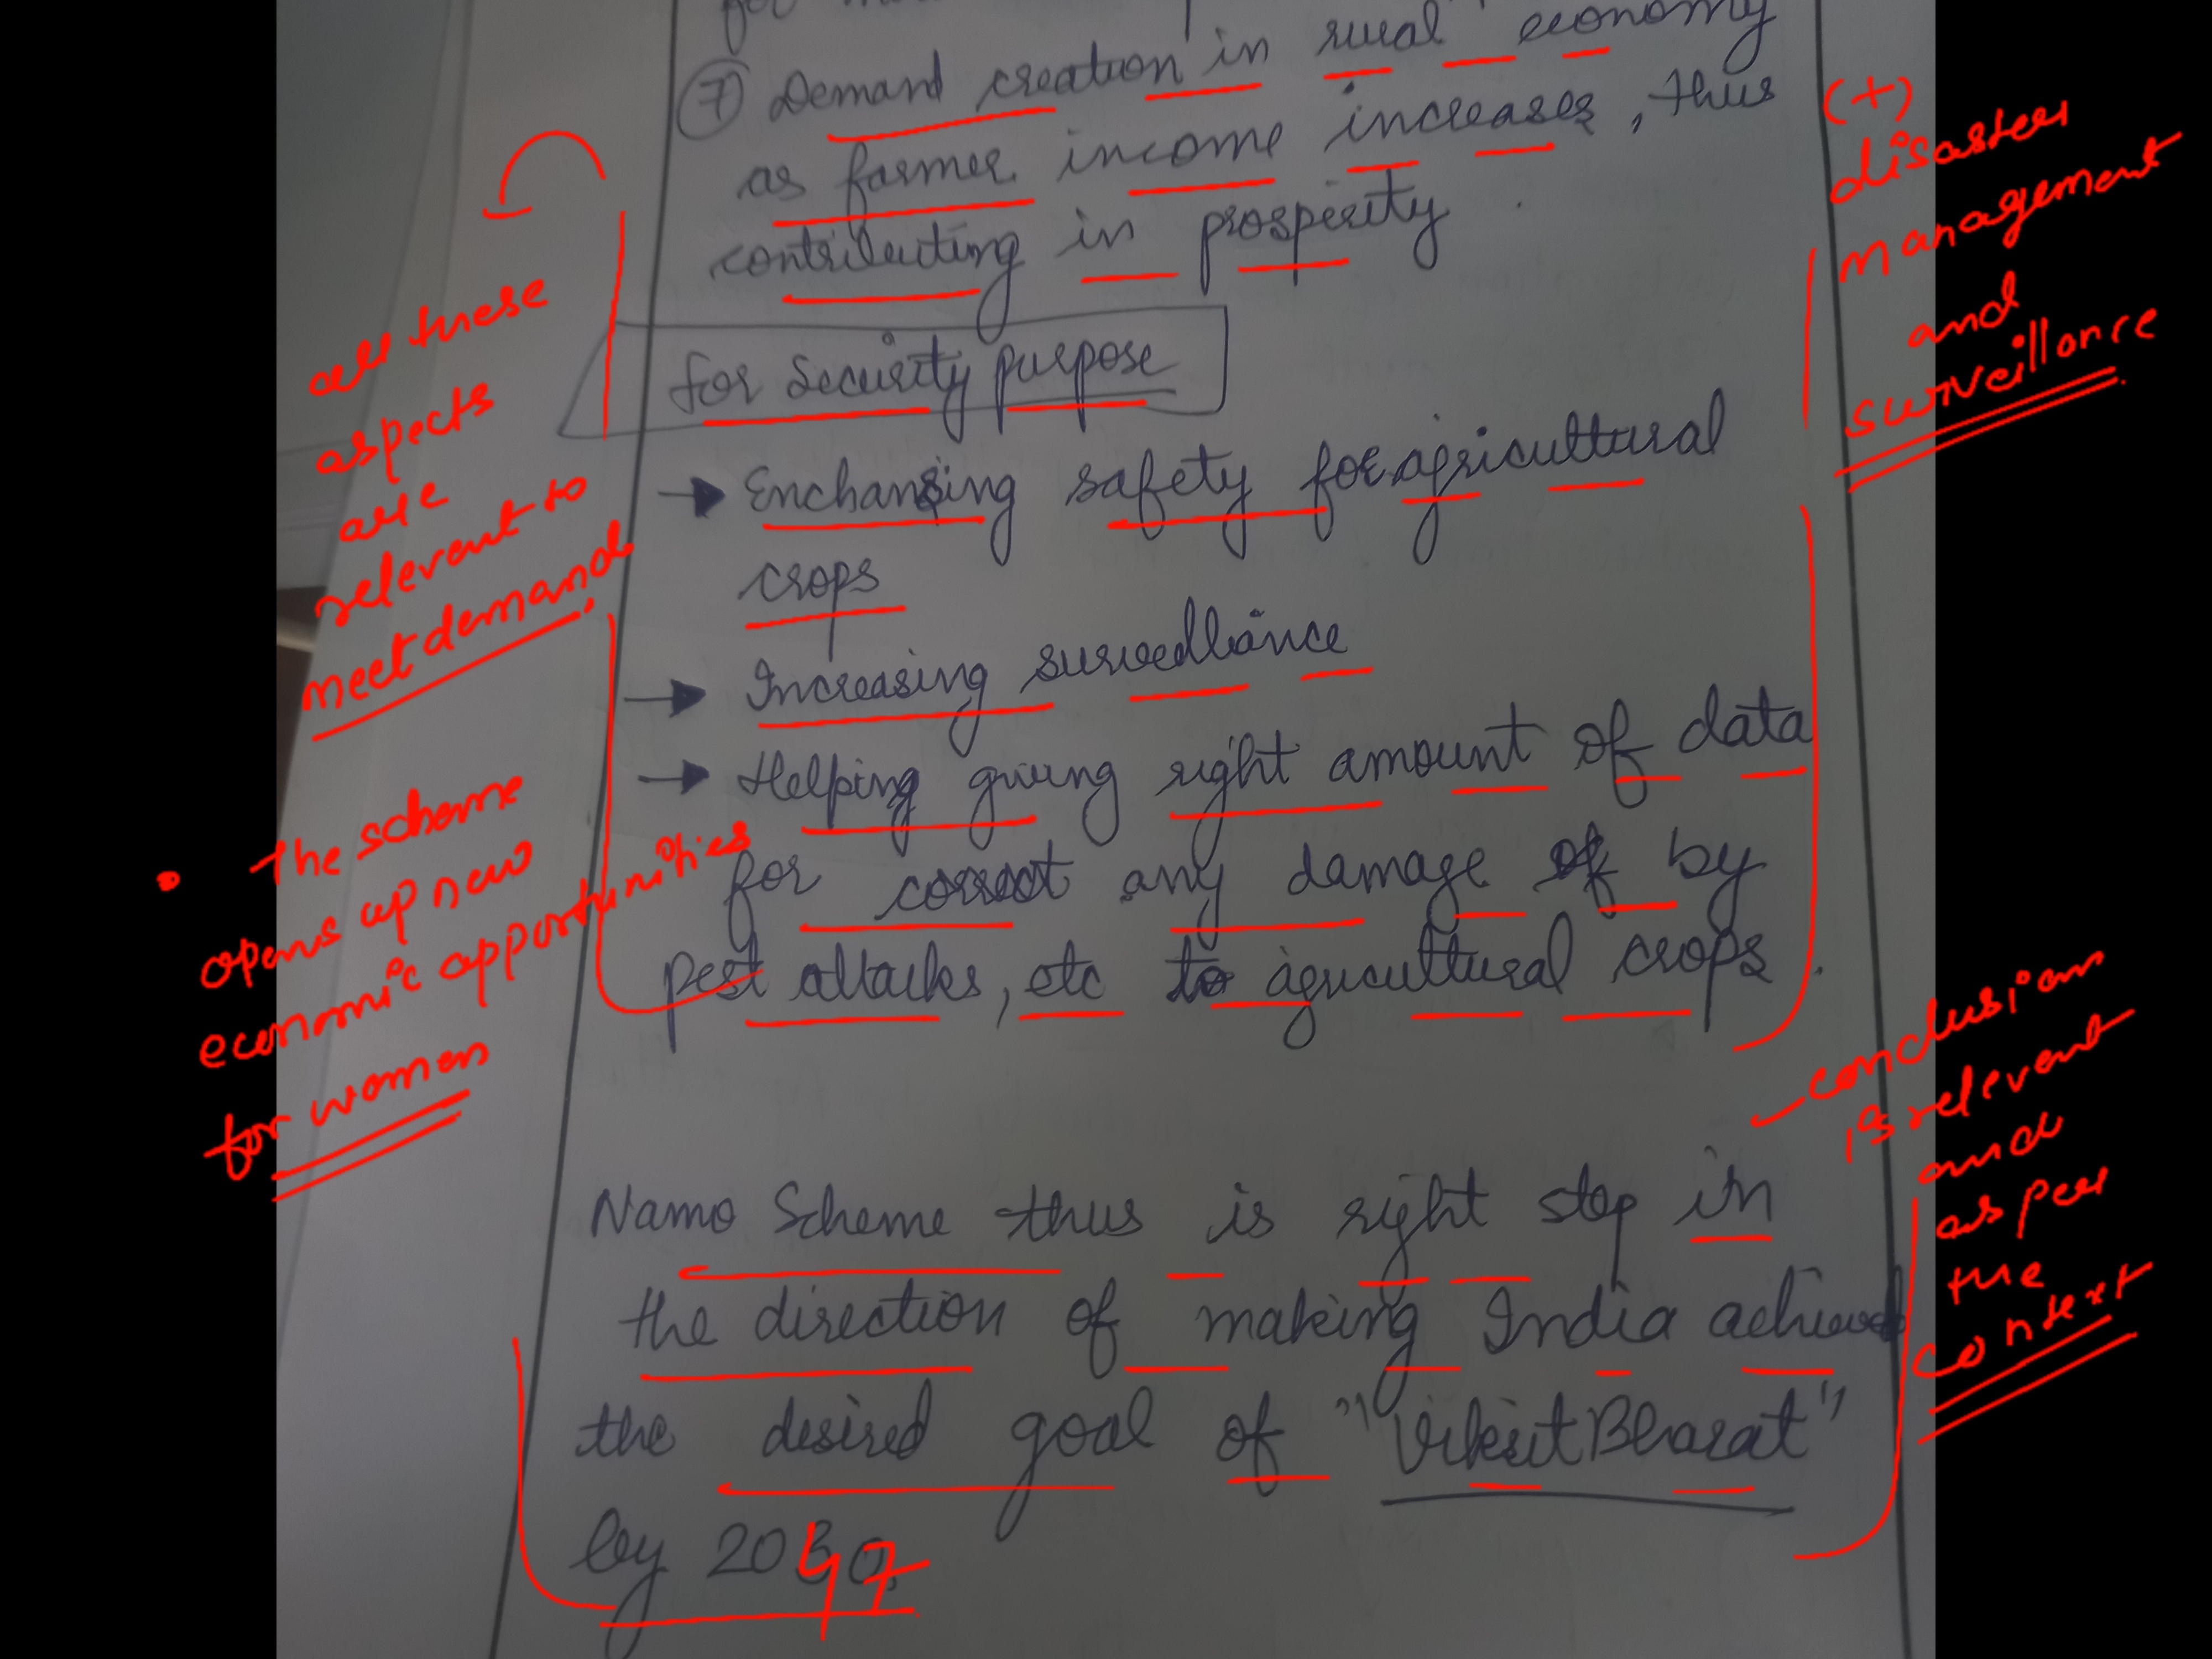 ⑦ Demand creation in rural economy
as farmer income increases, thus
contributing in prosperity.
For Security purpose
→ Enchancing safety for agricultural
crops
→ Increasing surveillance
→ Helping giving right amount of data
for correct any damage of by
pest attacks, etc to agricultural crops.
Namo Scheme thus is right step in
the direction of making India achieve
the desired goal of "Viksit Bharat"
by 2047
all these
aspects
are
relevant to
meet demand
• The scheme
opens up new
economic opportunities
for women
(+)
disaster
management
and
surveillance
conclusion
is relevant
and
as per
the
context